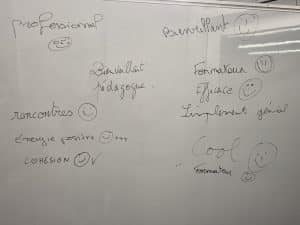 professionnal
Bienveillant
Bienveillant
pédagogue
Formateur
Efficace
rencontres
Simplement génial
énergie positive
COHÉSION
Cool
Formateur